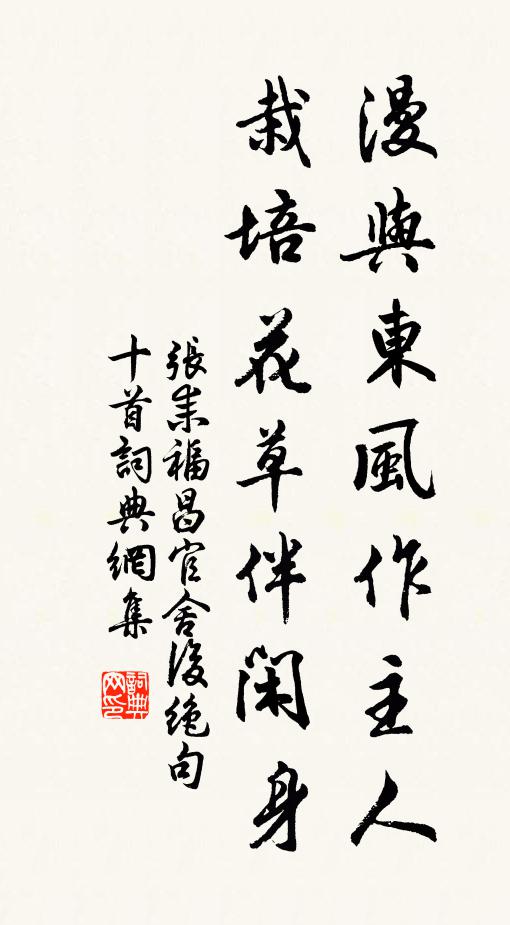 漫與東風作主人
栽培花草伴閑身
張耒福昌官舍後絕句
十首詞典網集
詞典
网印